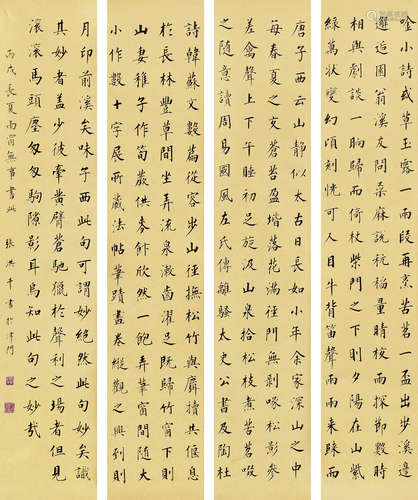 唫小詩或草玉露一兩段再烹苦茗一盃出步溪邊
邂逅園翁溪友問桑麻說秔稻量晴校雨探節數時
相與劇談一餉歸而倚杖柴門之下則夕陽在山紫
綠萬狀變幻頃刻恍可人目牛背笛聲兩兩來歸而
唐子西云山静似太古日長如小年余家深山之中
每春夏之交蒼苔盈堦落花滿徑門無剝啄松影參
差禽聲上下午睡初足旋汲山泉拾松枝煮苦茗啜
之隨意讀周易國風左氏傳離騷太史公書及陶杜
詩韓蘇文數篇從容步山徑撫松竹與麛犢共偃息
於長林豐草間坐弄流泉漱齒濯足既歸竹窗下則
山妻稚子作筍蕨供麥飰欣然一飽弄筆窗間隨大
小作數十字展所藏法帖筆蹟畫卷縱觀之興到則
月印前溪矣味子西此句可謂妙絕然此句妙矣識
其妙者蓋少彼牽黃臂蒼馳獵於聲利之場者但見
滾滾馬頭塵匆匆駒隙影耳烏知此句之妙哉
丙戌長夏雨窗無事書此 張洪千書於津門